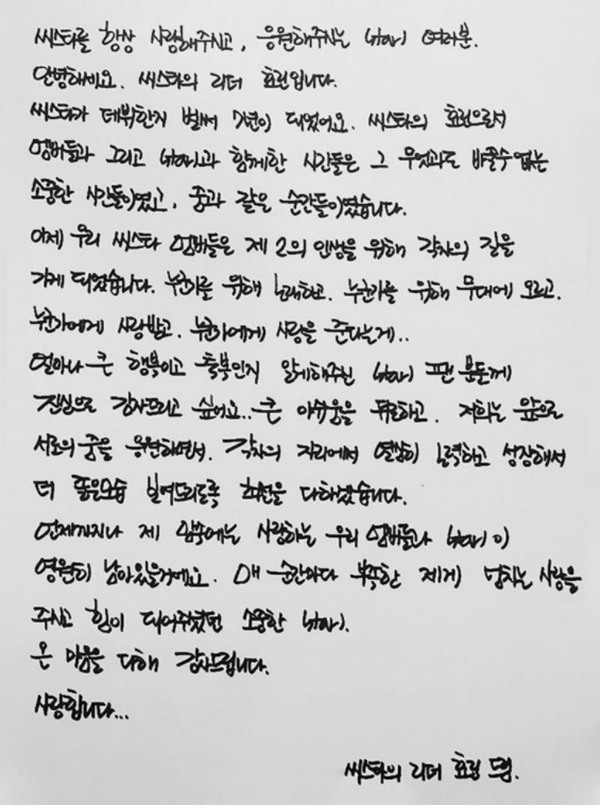 씨스타를 항상 사랑해주시고, 응원해주시는 star1 여러분.
안녕하세요. 씨스타의 리더 효린입니다.
씨스타가 데뷔한지 벌써 7년이 되었어요. 씨스타의 효린으로서
멤버들과 그리고 star1과 함께한 시간들은 그 무엇과도 바꿀수없는
소중한 시간들이였고, 꿈과 같은 순간들이였습니다.
이제 우리 씨스타 멤버들은 제 2의 인생을 위해 각자의 길을
가게 되었습니다. 누군가를 위해 노래하고. 누군가를 위해 무대에 오르고.
누군가에게 사랑받고. 누군가에게 사랑을 준다는게..
얼마나 큰 행복이고 축복인지 알게해주신 star1 팬 분들께
진심으로 감사드리고 싶어요.. 큰 아쉬움을 뒤로하고. 저희는 앞으로
서로의 꿈을 응원하면서. 각자의 자리에서 열심히 노력하고 성장해서
더 좋은모습 보여드리도록 최선을 다하겠습니다.
언제까지나 제 맘속에는 사랑하는 우리 멤버들과 star1이
영원히 남아있을거예요. 매 순간마다 부족한 제게 넘치는 사랑을
주시고 힘이 되어주셨던 소중한 star1.
온 마음을 다해 감사드립니다.
사랑합니다...
씨스타의 리더 효린 드림.